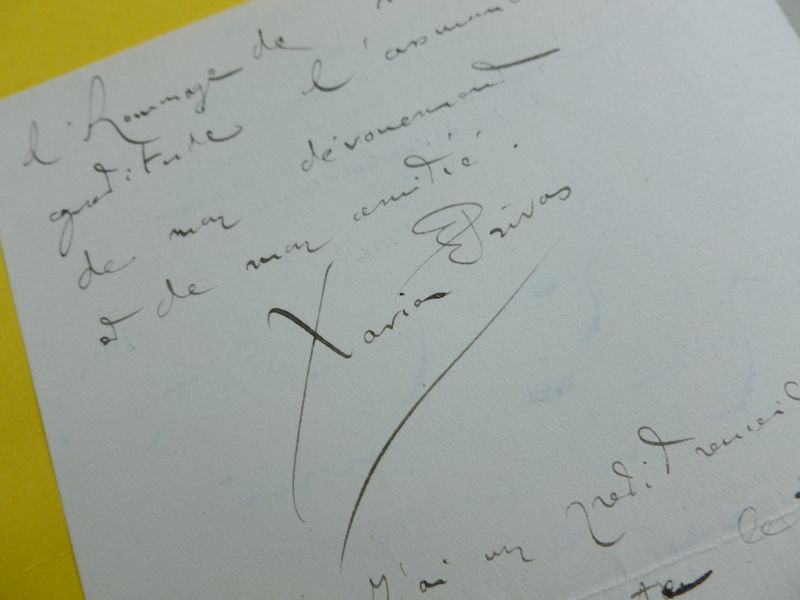 l'hommage de
gratitude l'assurance
de mon dévouement
et de mon amitié.
Xavier Privas
J'ai un petit recueil